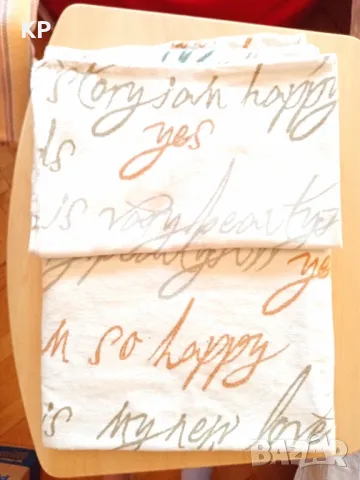 KP
is story jam happy
yes
ls
is vary beauty
ye
m so happy
is my new love
BAZAR